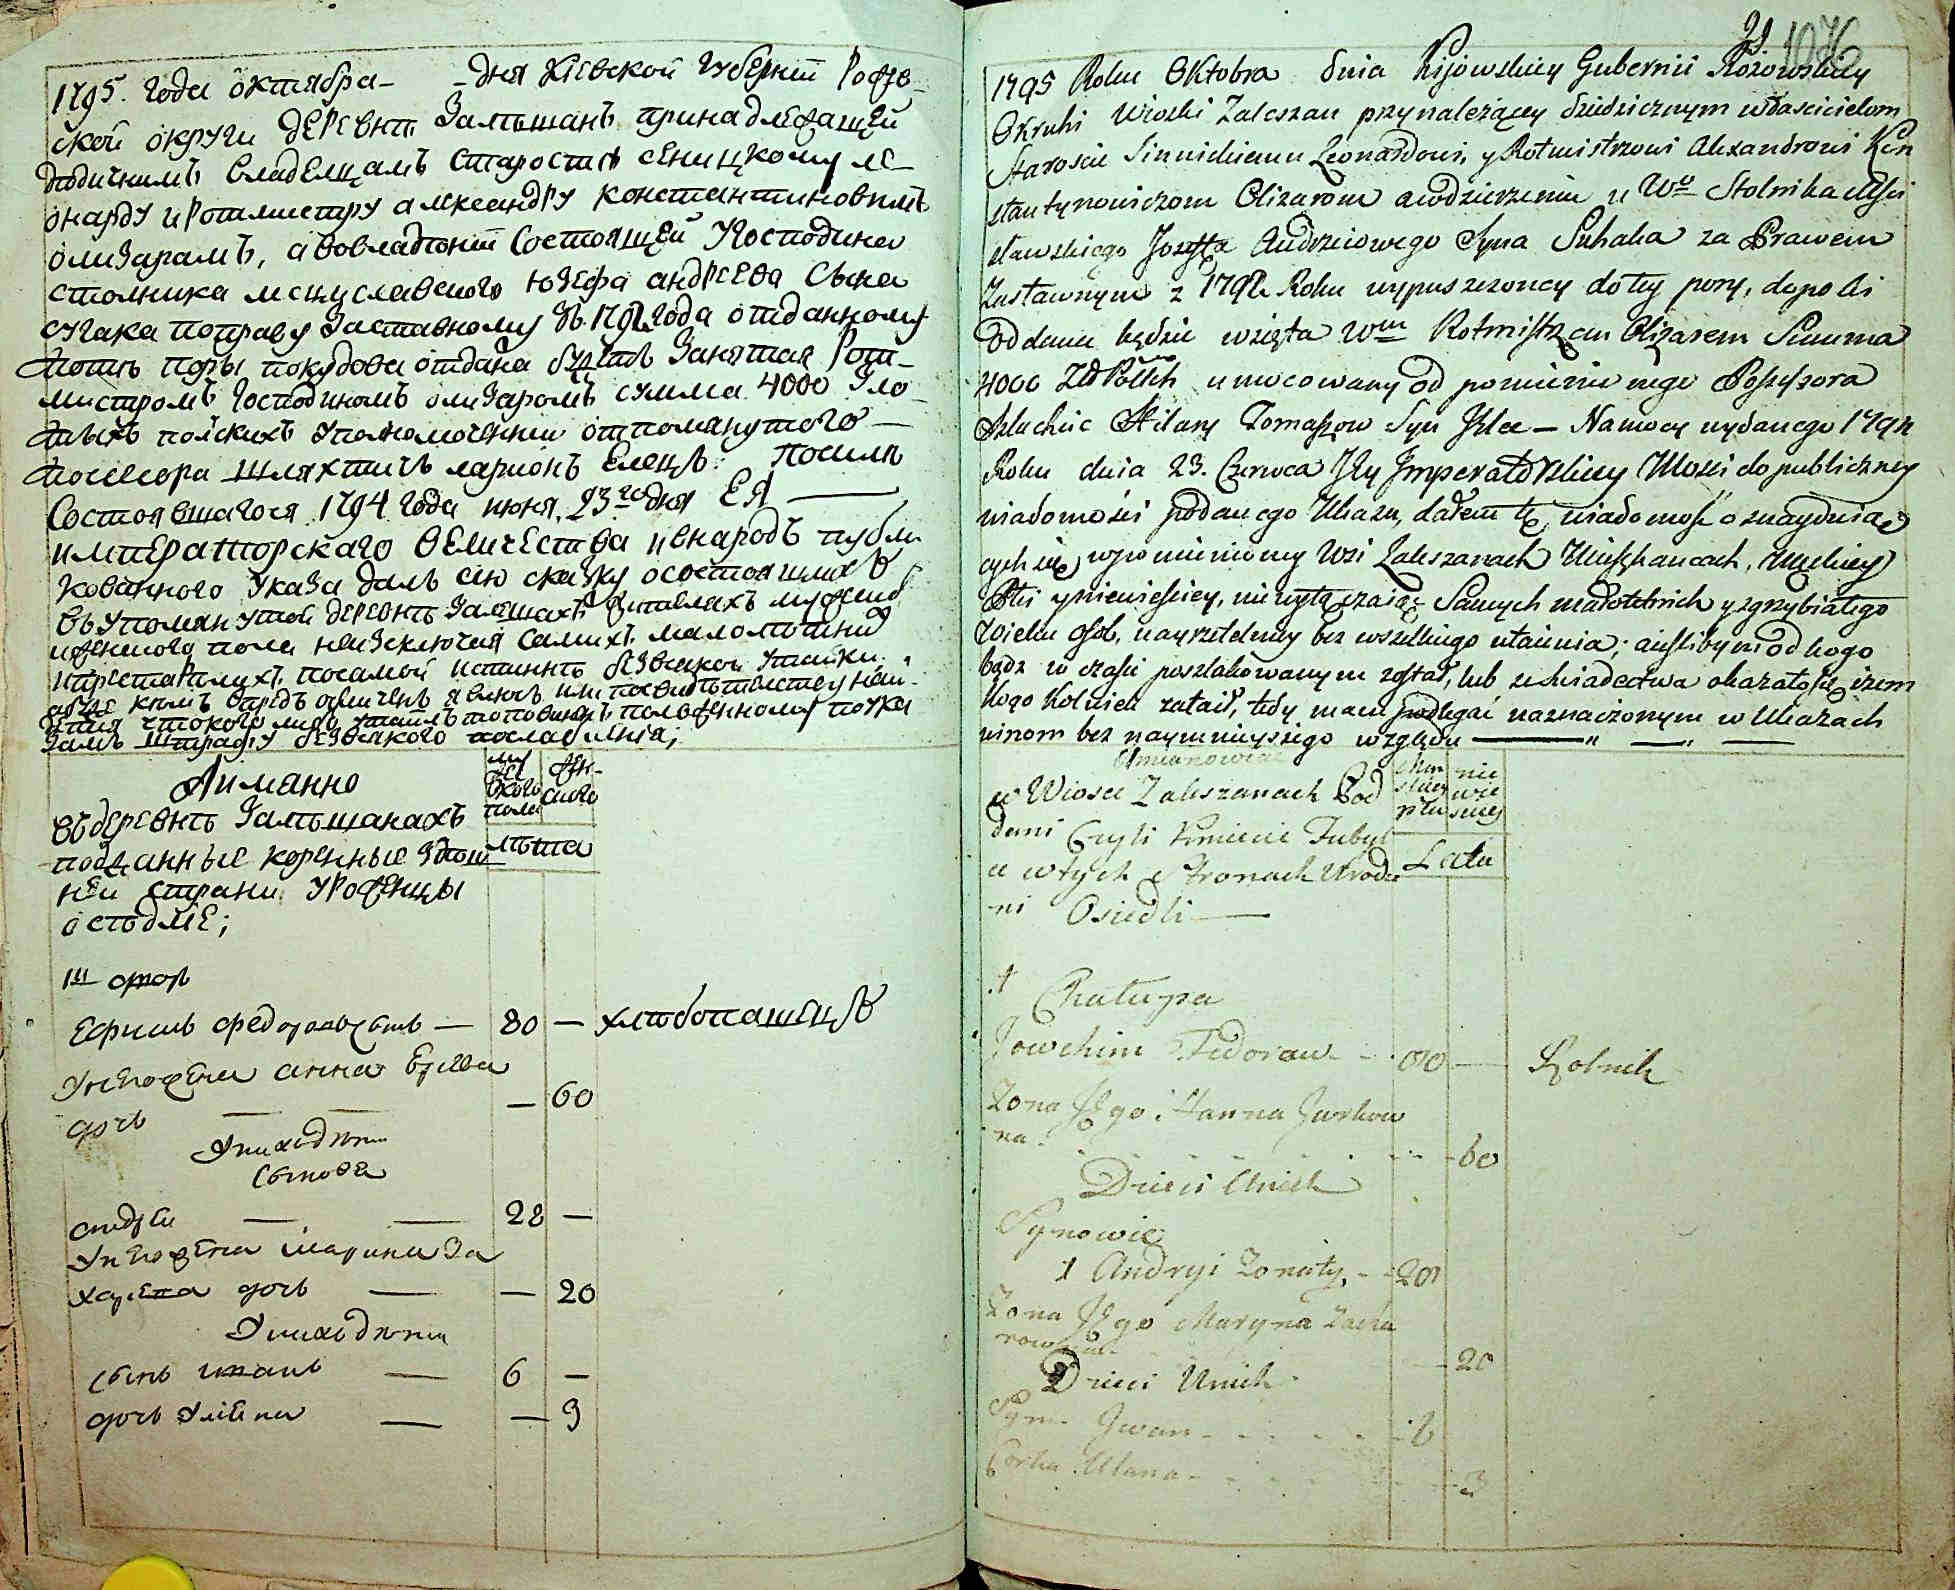 1795. года октября – – дня Кіевской губерніи Рожов-
ской округи деревнѣ Залѣшанъ принадлежащей
дѣдичнимъ владелцамъ старостѣ сеницкому ле-
онарду и ротмистру александру константиновичамъ
олизарамъ, а вовладѣніи Состоящей У Господина
столника мсцуславского юзефа андреева сына
сухака поправу заставному Въ 1792 года отданному
потѣ поры покудова отдана будетъ занятая Рот-
мистромъ Господиномъ олизаромъ сумма 4000 зло-
тыхъ полскихъ уполномоченни отпомянутого –
посесора шляхтичъ ларионъ Елецъ. Посилѣ
Состоявшагося 1794 года июня 23го дня ЕЯ ——
императорскаго величества ивнародъ публи
кованного указа далъ сию сказку осостоящихъ
въупомянутой деревнѣ Залѣшахъ мужеска
иженского пола неизключая самихъ малолѣтнихъ
ипрестарѣлихъ посамой истиннѣ безвсякой утайки.
замъ штрафу безвсякого послабленія;
Аимянно
въдеревнѣ Залѣшанахъ
подданные коренные здѣш
ней страни уроженцы
осѣдлые;
муж
еска
пола
жен-
ского
лѣта
Ефимъ федоровъ сынъ — 80 — хлѣбопашецъ
Унегожена анна Юрева
дочь — — — 60
Унихдѣти
Сынове
андрей — — 28 —
Унегожена марина За
харева дочь — — 20
Унихдѣти
Сынъ иванъ — 6 —
дочь улияна — — 3
91
1076
1795 Roku Oktobra dnia Kijowskiey Gubernii Rozowskiey
Okruhi Wioski Zaleszan przynależącey dziedzicznym własccicielom
Staroscie Sinnickiemu Leonardowi, y Rotmistrzowi Alexandrowi Kon
stantynowiczom Olizarom awdzierzeniu u Wo Stolnika Mści
sławskiego Jozefa Andrzeiowego Syna Suhaka za Prawem
Zastawnym z 1792 Roku wypuszczoney do tey pory, dopoki
oddana będzie wzięta Wm Rotmistrzem Olizarem Summa
4000 Zł Polch umocowany od pomienionego Possesora
Szlachcic Hilary Tomaszow Syn Jelec — Na mocy wydanego 1794
Roku dnia 23. Czerwca Jey Imperatorskiey Mości do publiczney
wiadomości podanego Ukazu, dałem tę wiadomość o znayduią
cych się wpomienioney Wsi Zaleszanach Mieszkancach, Męskiey
Płci y niewieściey, niewyłączaiąc Samych małoletnich y zgrzybiałego
Wieku osob, nayrzetelniey bez wszelkiego utaienia; aieśliby m od kogo
bądz w czasie poszlakowanym został, lub ze swiadectwa okazało się iżem
kogo kolwiek zataił, tedy mam podlegać naznaczonym w Ukazach
winom bez naymnieyszego względu —— „ — „ —
Amianowicie
w Wiosce Zaleszanach Pod
dani Czyli Kmiecie Tubyl
cc w tych Stronach Urodze
ni Osiedli —
Męz
skiey
płci
nie
wie
sciey
Lata
1 Chałupa
Jowchim Fedorow - - 80 — Rolnik
Zona Jego Hanna Jurkow
na - - - - - - 60
Dzieci Unich
Synowie
1 Andryi Zonaty - - 28
Zona Jego Maryna Zacha
rowna - - - 20
Dzieci Unich
Syn Jwan - - - - - 6
Corka Ulana - - - - - 3